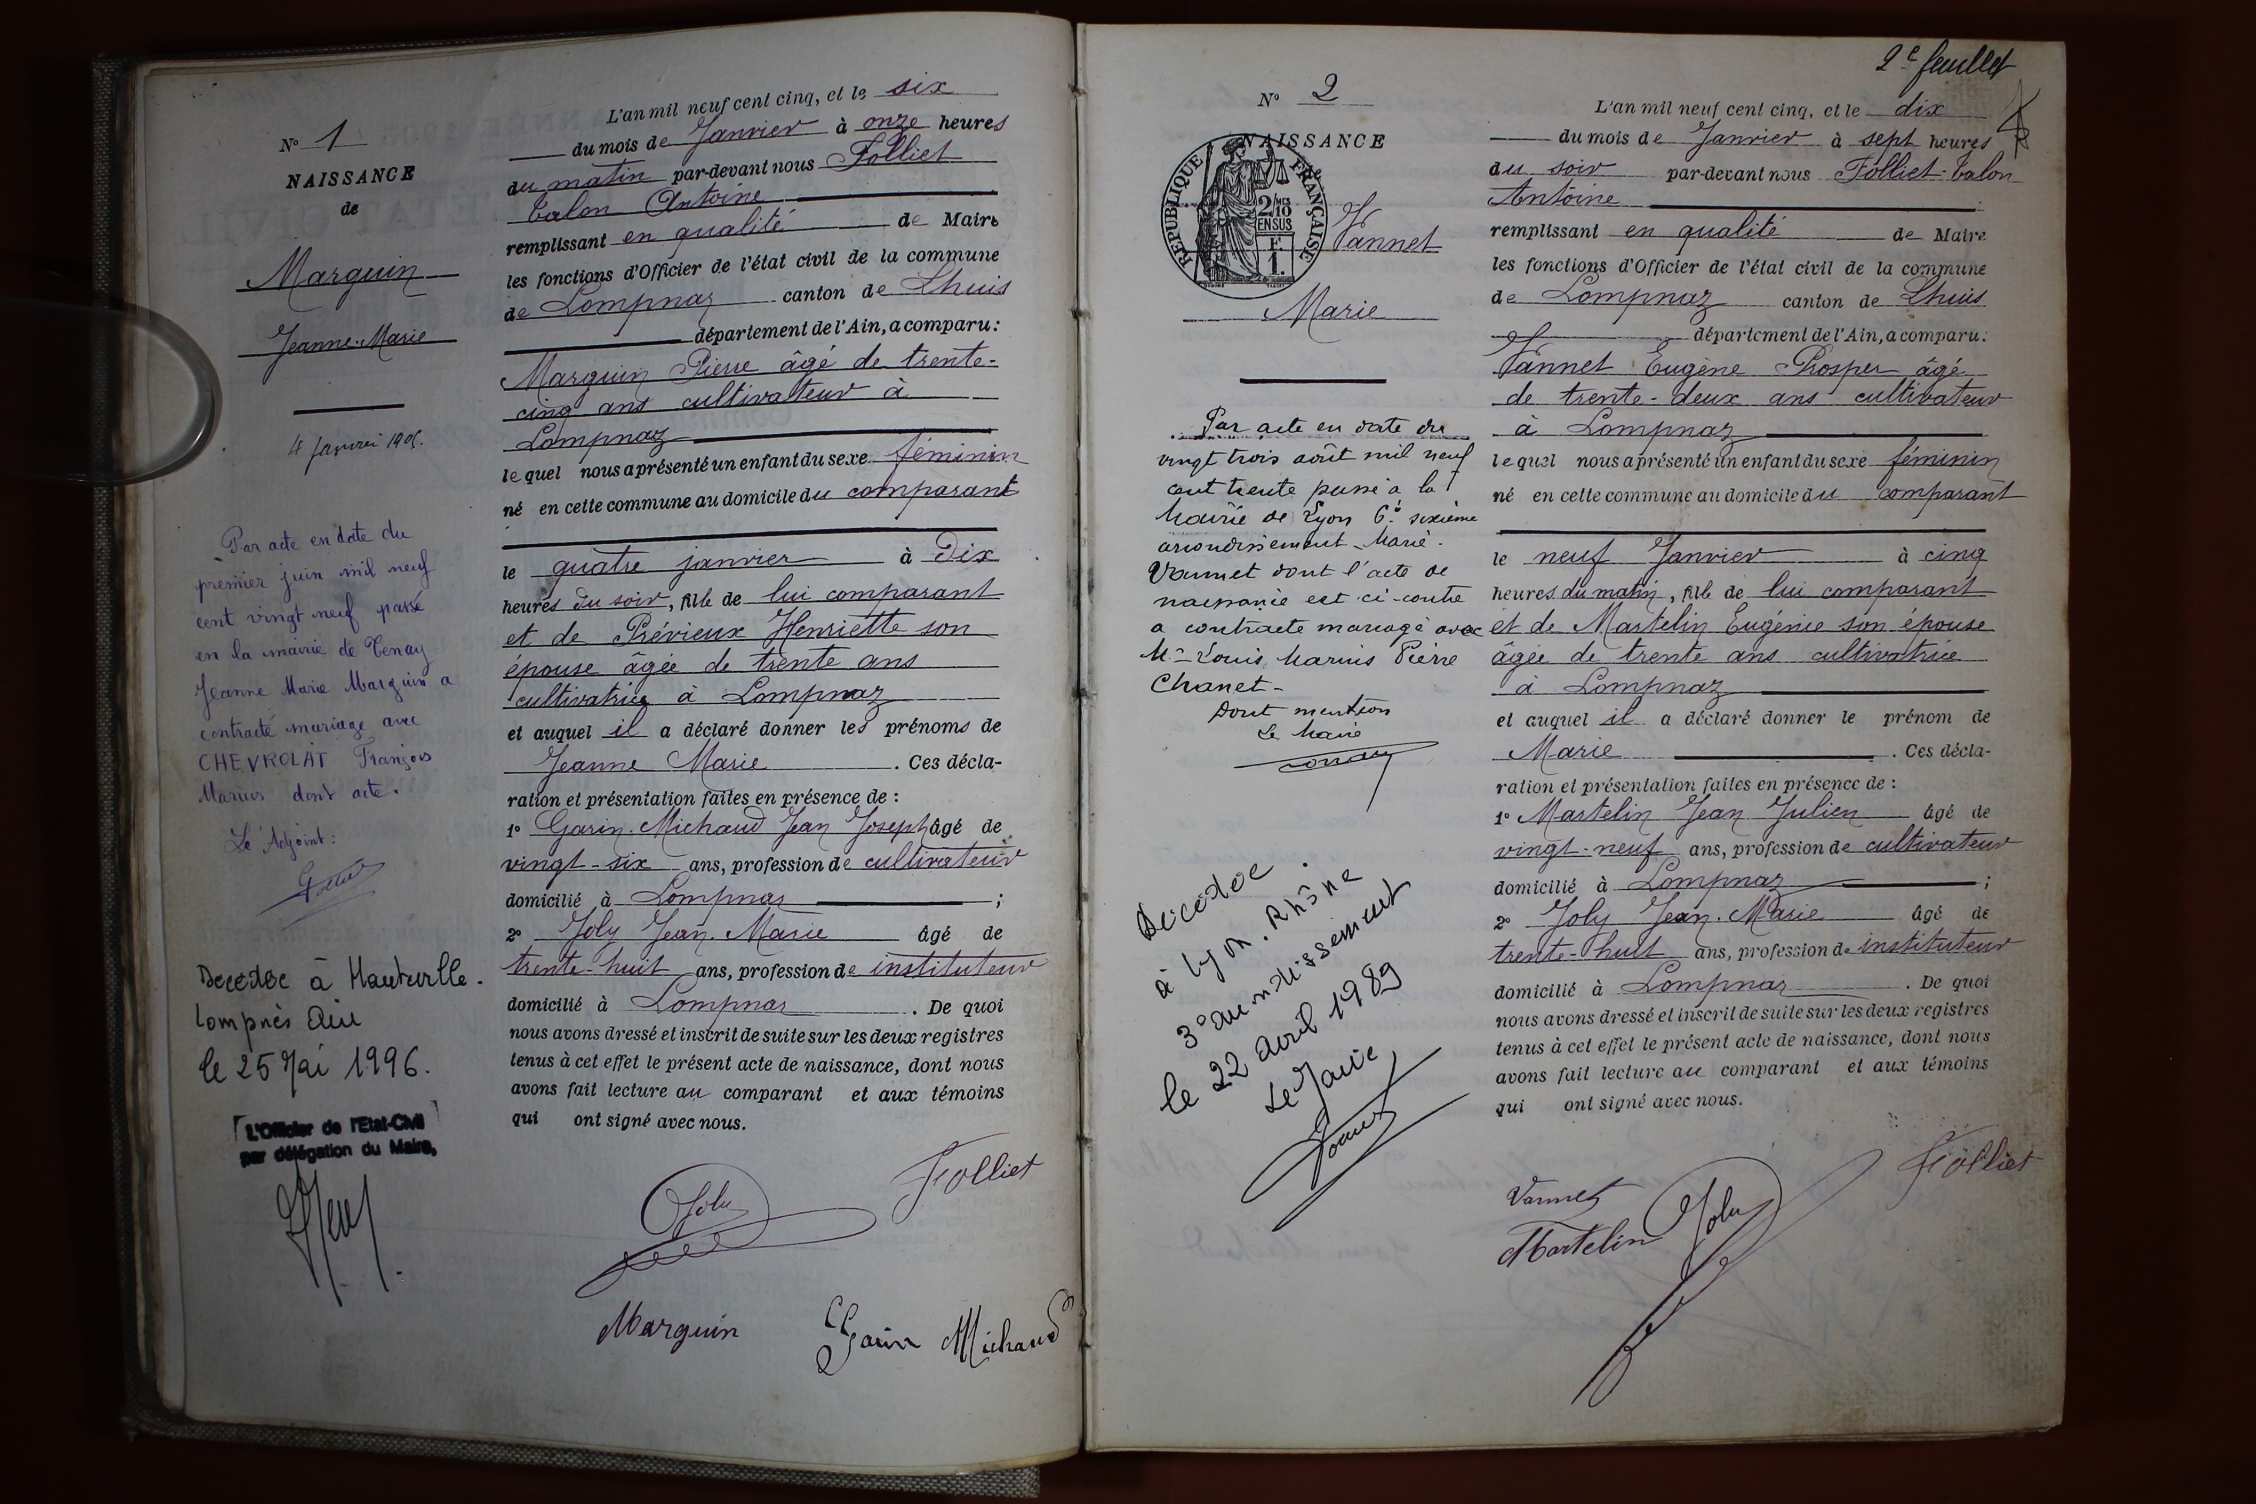 N° 1
NAISSANCE
de
Marguin
Jeanne-Marie
4 Janvier 1905.
Par acte en date du
premier juin mil neuf
cent vingt neuf passé
en la mairie de Tenay
Jeanne Marie Marguin a
contracté mariage avec
CHEVROLAT François
Marius dont acte.
Le Adjoint:
Décédée à Hauteville-
Lompnès Ain
le 25 Mai 1996.
L'Officier de l'Etat-Civil
par délégation du Maire,
L'an mil neuf cent cinq, et le six
du mois de Janvier à onze heures
du matin par-devant nous Folliet
Talon Antoine
remplissant en qualité de Maire
les fonctions d'Officier de l'état civil de la commune
de Lompnaz canton de Lhuis
département de l'Ain, a comparu:
Marguin Pierre âgé de trente-
cinq ans cultivateur à
Lompnaz
lequel nous a présenté un enfant du sexe féminin
né en cette commune au domicile du comparant
le quatre janvier à Dix
heures du soir, fille de lui comparant
et de Prévieux Henriette son
épouse âgée de trente ans
cultivatrice à Lompnaz
et auquel il a déclaré donner les prénoms de
Jeanne Marie. Ces décla-
ration et présentation faites en présence de :
1° Garin-Michaud Jean Joseph âgé de
vingt-six ans, profession de cultivateur
domicilié à Lompnas ;
2° Joly Jean-Marie âgé de
trente-huit ans, profession de instituteur
domicilié à Lompnas. De quoi
nous avons dressé et inscrit de suite sur les deux registres
tenus à cet effet le présent acte de naissance, dont nous
avons fait lecture au comparant et aux témoins
qui ont signé avec nous.
Joly
Folliet
Marguin
Garin Michaud
2e feuillet
N° 2
NAISSANCE
REPUBLIQUE FRANÇAISE
2/10
EN SUS
F.
1.
Vannet
Marie
Par acte en date du
vingt trois août mil neuf
cent trente passé à la
Mairie de Lyon 6e sixième
arrondissement Marie
Vannet dont l'acte de
naissance est ci-contre
a contracté mariage avec
Mr Louis Marius Pierre
Chanet-
Dont mention
Le Maire
Décédée
à Lyon. Rhône
3° arrondissement
le 22 avril 1989
Le Maire
L'an mil neuf cent cinq, et le dix
du mois de Janvier à sept heures
du soir par-devant nous Folliet-Talon
Antoine
remplissant en qualité de Maire
les fonctions d'Officier de l'état civil de la commune
de Lompnaz canton de Lhuis
département de l'Ain, a comparu:
Vannet Eugène Prosper âgé
de trente-deux ans cultivateur
à Lompnaz
lequel nous a présenté un enfant du sexe féminin
né en cette commune au domicile du comparant
le neuf Janvier à cinq
heures du matin, fille de lui comparant
et de Martelin Eugénie son épouse
âgée de trente ans cultivatrice
à Lompnaz
et auquel il a déclaré donner le prénom de
Marie. Ces décla-
ration et présentation faites en présence de :
1° Martelin Jean Julien âgé de
vingt-neuf ans, profession de cultivateur
domicilié à Lompnaz ;
2° Joly Jean-Marie âgé de
trente-huit ans, profession de instituteur
domicilié à Lompnaz. De quoi
nous avons dressé et inscrit de suite sur les deux registres
tenus à cet effet le présent acte de naissance, dont nous
avons fait lecture au comparant et aux témoins
qui ont signé avec nous.
Vannet
Folliet
Martelin Joly